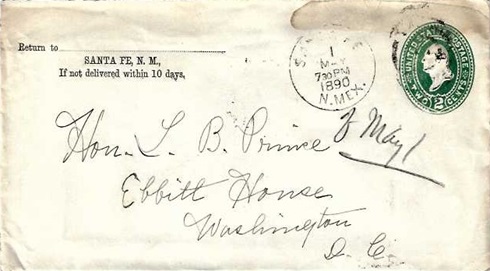 Return to
SANTA FE, N. M.,
If not delivered within 10 days,
1
MAY
730PM
1890
N.MEX.
UNITED STATES POSTAGE
TWO 2 CENTS
Hon. L. B. Prince
May 1
Ebbitt House
Washington
D. C.